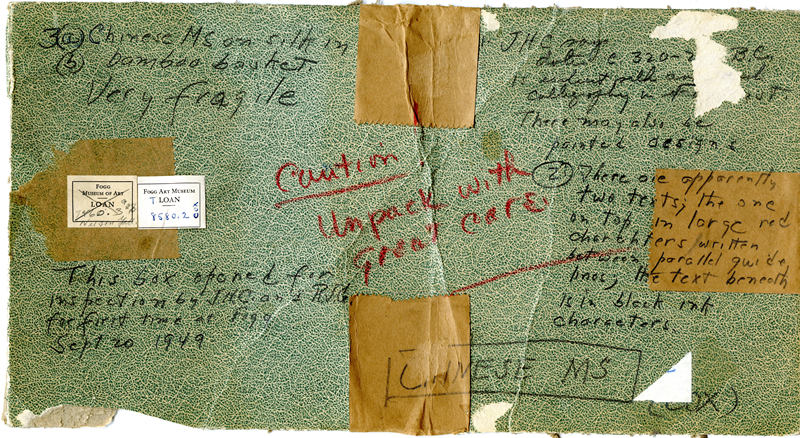 3(a) Chinese MS on silk in
(b) bamboo basket.
Very fragile
FOGG
MUSEUM OF ART
LOAN
1460.
FOGG ART MUSEUM
T LOAN
8580.2
This box opened for
inspection by JHC and
for first time at Fogg
Sept 20 1949
Caution
Unpack with
great care.
JHC says
date c 320- B.C.
calligraphy
There may also be
painted designs
(2) There are apparently
two texts; the one
on top in large red
characters written
between parallel guide
lines; the text beneath
is in black ink
characters.
CHINESE MS
(COX)